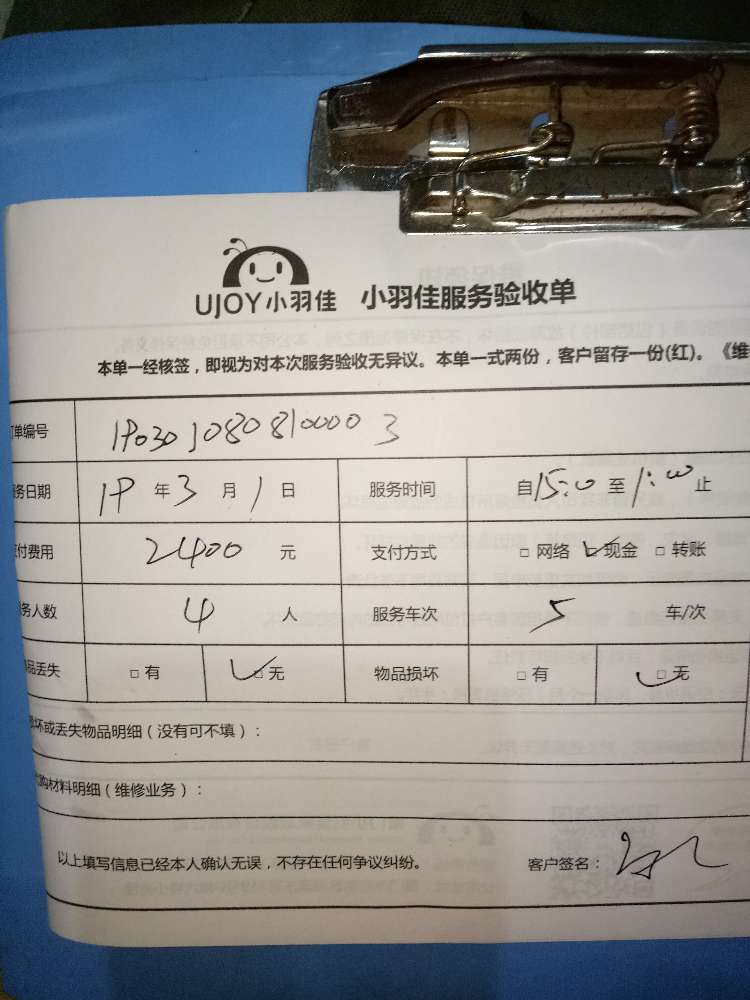 UJOY小羽佳 小羽佳服务验收单
本单一经核签，即视为对本次服务验收无异议。本单一式两份，客户留存一份(红)。《维
单编号 190301080810000 3
务日期 19 年 3 月 1 日 服务时间 自 15:00 至 1:00 止
付费用 2400 元 支付方式 □ 网络 ☑ 现金 □ 转账
务人数 4 人 服务车次 5 车/次
品丢失 □ 有 ☑ 无 物品损坏 □ 有 ☑ 无
坏或丢失物品明细（没有可不填）：
购材料明细（维修业务）：
以上填写信息已经本人确认无误，不存在任何争议纠纷。 客户签名：